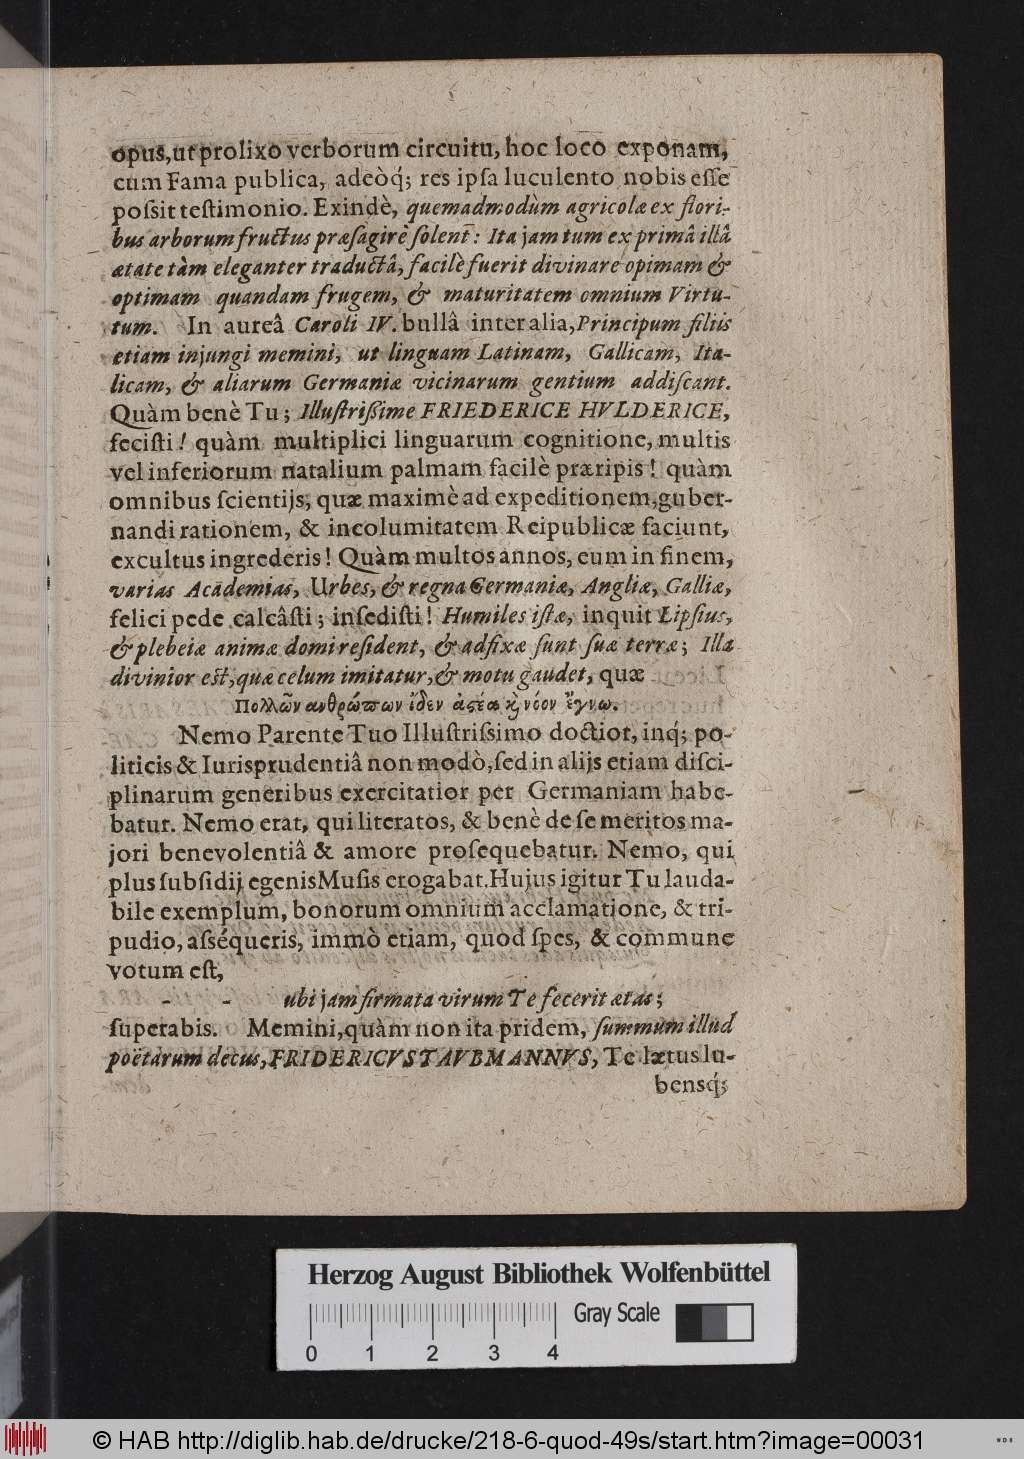 opus, ut prolixo verborum circuitu, hoc loco exponam,
cum Fama publica, adeòq́; res ipſa luculento nobis eſſe
poſsit teſtimonio. Exindè, quemadmodùm agricolæ ex flori-
bus arborum fructus præſagirè ſolent: Ita jam tum ex primâ illâ
ætate tàm eleganter traductâ, facilè fuerit divinare opimam &
optimam quandam frugem, & maturitatem omnium Virtu-
tum. In aureâ Caroli IV. bullâ inter alia, Principum filiis
etiam injungi memini, ut linguam Latinam, Gallicam, Ita-
licam, & aliarum Germaniæ vicinarum gentium addiſcant.
Quàm benè Tu; Illuſtrißime FRIEDERICE HVLDERICE,
feciſti! quàm multiplici linguarum cognitione, multis
vel inferiorum natalium palmam facilè præripis! quàm
omnibus ſcientijs, quæ maximè ad expeditionem, guber-
nandi rationem, & incolumitatem Reipublicæ faciunt,
excultus ingrederis! Quàm multos annos, eum in finem,
varias Academias, Urbes, & regna Germaniæ, Angliæ, Galliæ,
felici pede calcâſti; inſediſti! Humiles iſtæ, inquit Lipſius,
& plebeiæ animæ domi reſident, & adfixæ ſunt ſuæ terræ; Illa
divinior est, quæ celum imitatur, & motu gaudet, quæ
Πολλῶν ανθρώπων ἰδεν ἀςέα κ̀ νόον ἔγνω.
Nemo Parente Tuo Illuſtriſsimo doctior, inq́; po-
liticis & Iurisprudentiâ non modò, ſed in alijs etiam diſci-
plinarum generibus exercitatior per Germaniam habe-
batur. Nemo erat, qui literatos, & benè de ſe meritos ma-
jori benevolentiâ & amore proſequebatur. Nemo, qui
plus ſubſidij egenis Muſis erogabat. Hujus igitur Tu lauda-
bile exemplum, bonorum omnium acclamatione, & tri-
pudio, aſséqueris, immò etiam, quod ſpes, & commune
votum eſt,
- - ubi jam firmata virum Te fecerit ætas;
ſuperabis. Memini, quàm non ita pridem, ſummum illud
poëtarum decus, FRIDERICVS TAVBMANNVS, Te lætus lu-
bensq́;
Herzog August Bibliothek Wolfenbüttel
Gray Scale
0 1 2 3 4
© HAB http://diglib.hab.de/drucke/218-6-quod-49s/start.htm?image=00031